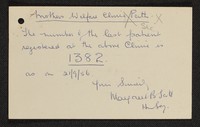 Mother Welfare Clinic, Perth
The number of the last patient
registered at the above Clinic is
1382.
as on 21/9/26
Yours Sincerely
Margaret B.
Hon. Sec.